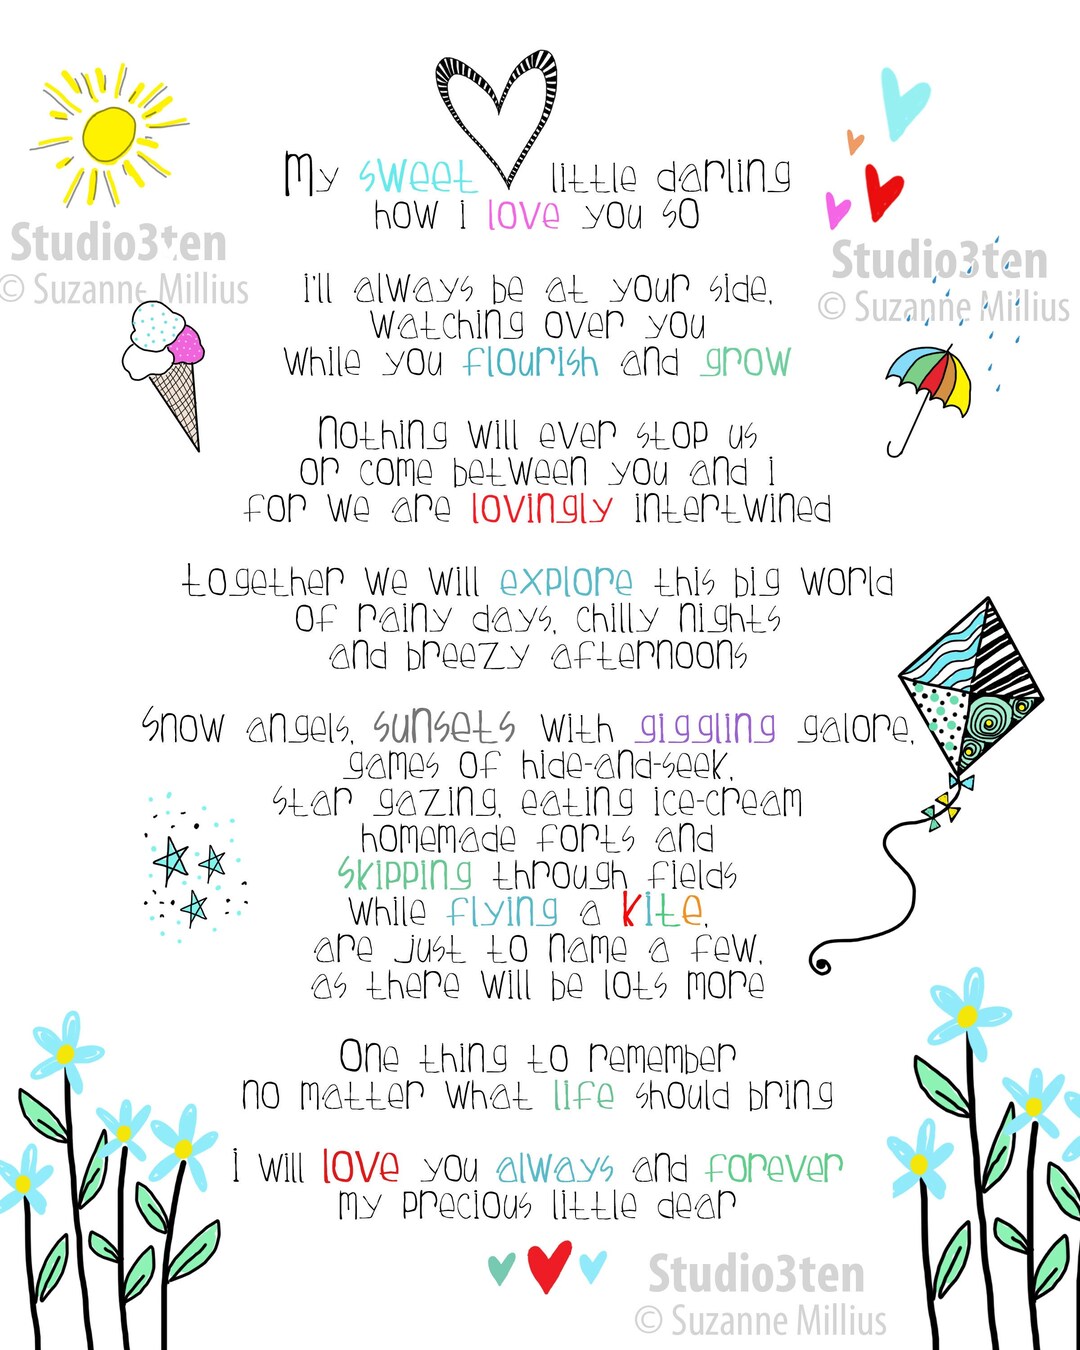 My sweet little darling
how i love you so
Studio3ten
© Suzanne Millius
Studio3ten
© Suzanne Millius
i'll always be at your side,
watching over you
while you flourish and grow
Nothing will ever stop us
or come between you and i
for we are lovingly intertwined
together we will explore this big world
of rainy days, chilly nights
and breezy afternoons
Snow angels, sunsets with giggling galore,
games of hide-and-seek,
star gazing, eating ice-cream
homemade forts and
skipping through fields
while flying a kite,
are just to name a few,
as there will be lots more
One thing to remember
no matter what life should bring
i will love you always and forever
my precious little dear
Studio3ten
© Suzanne Millius